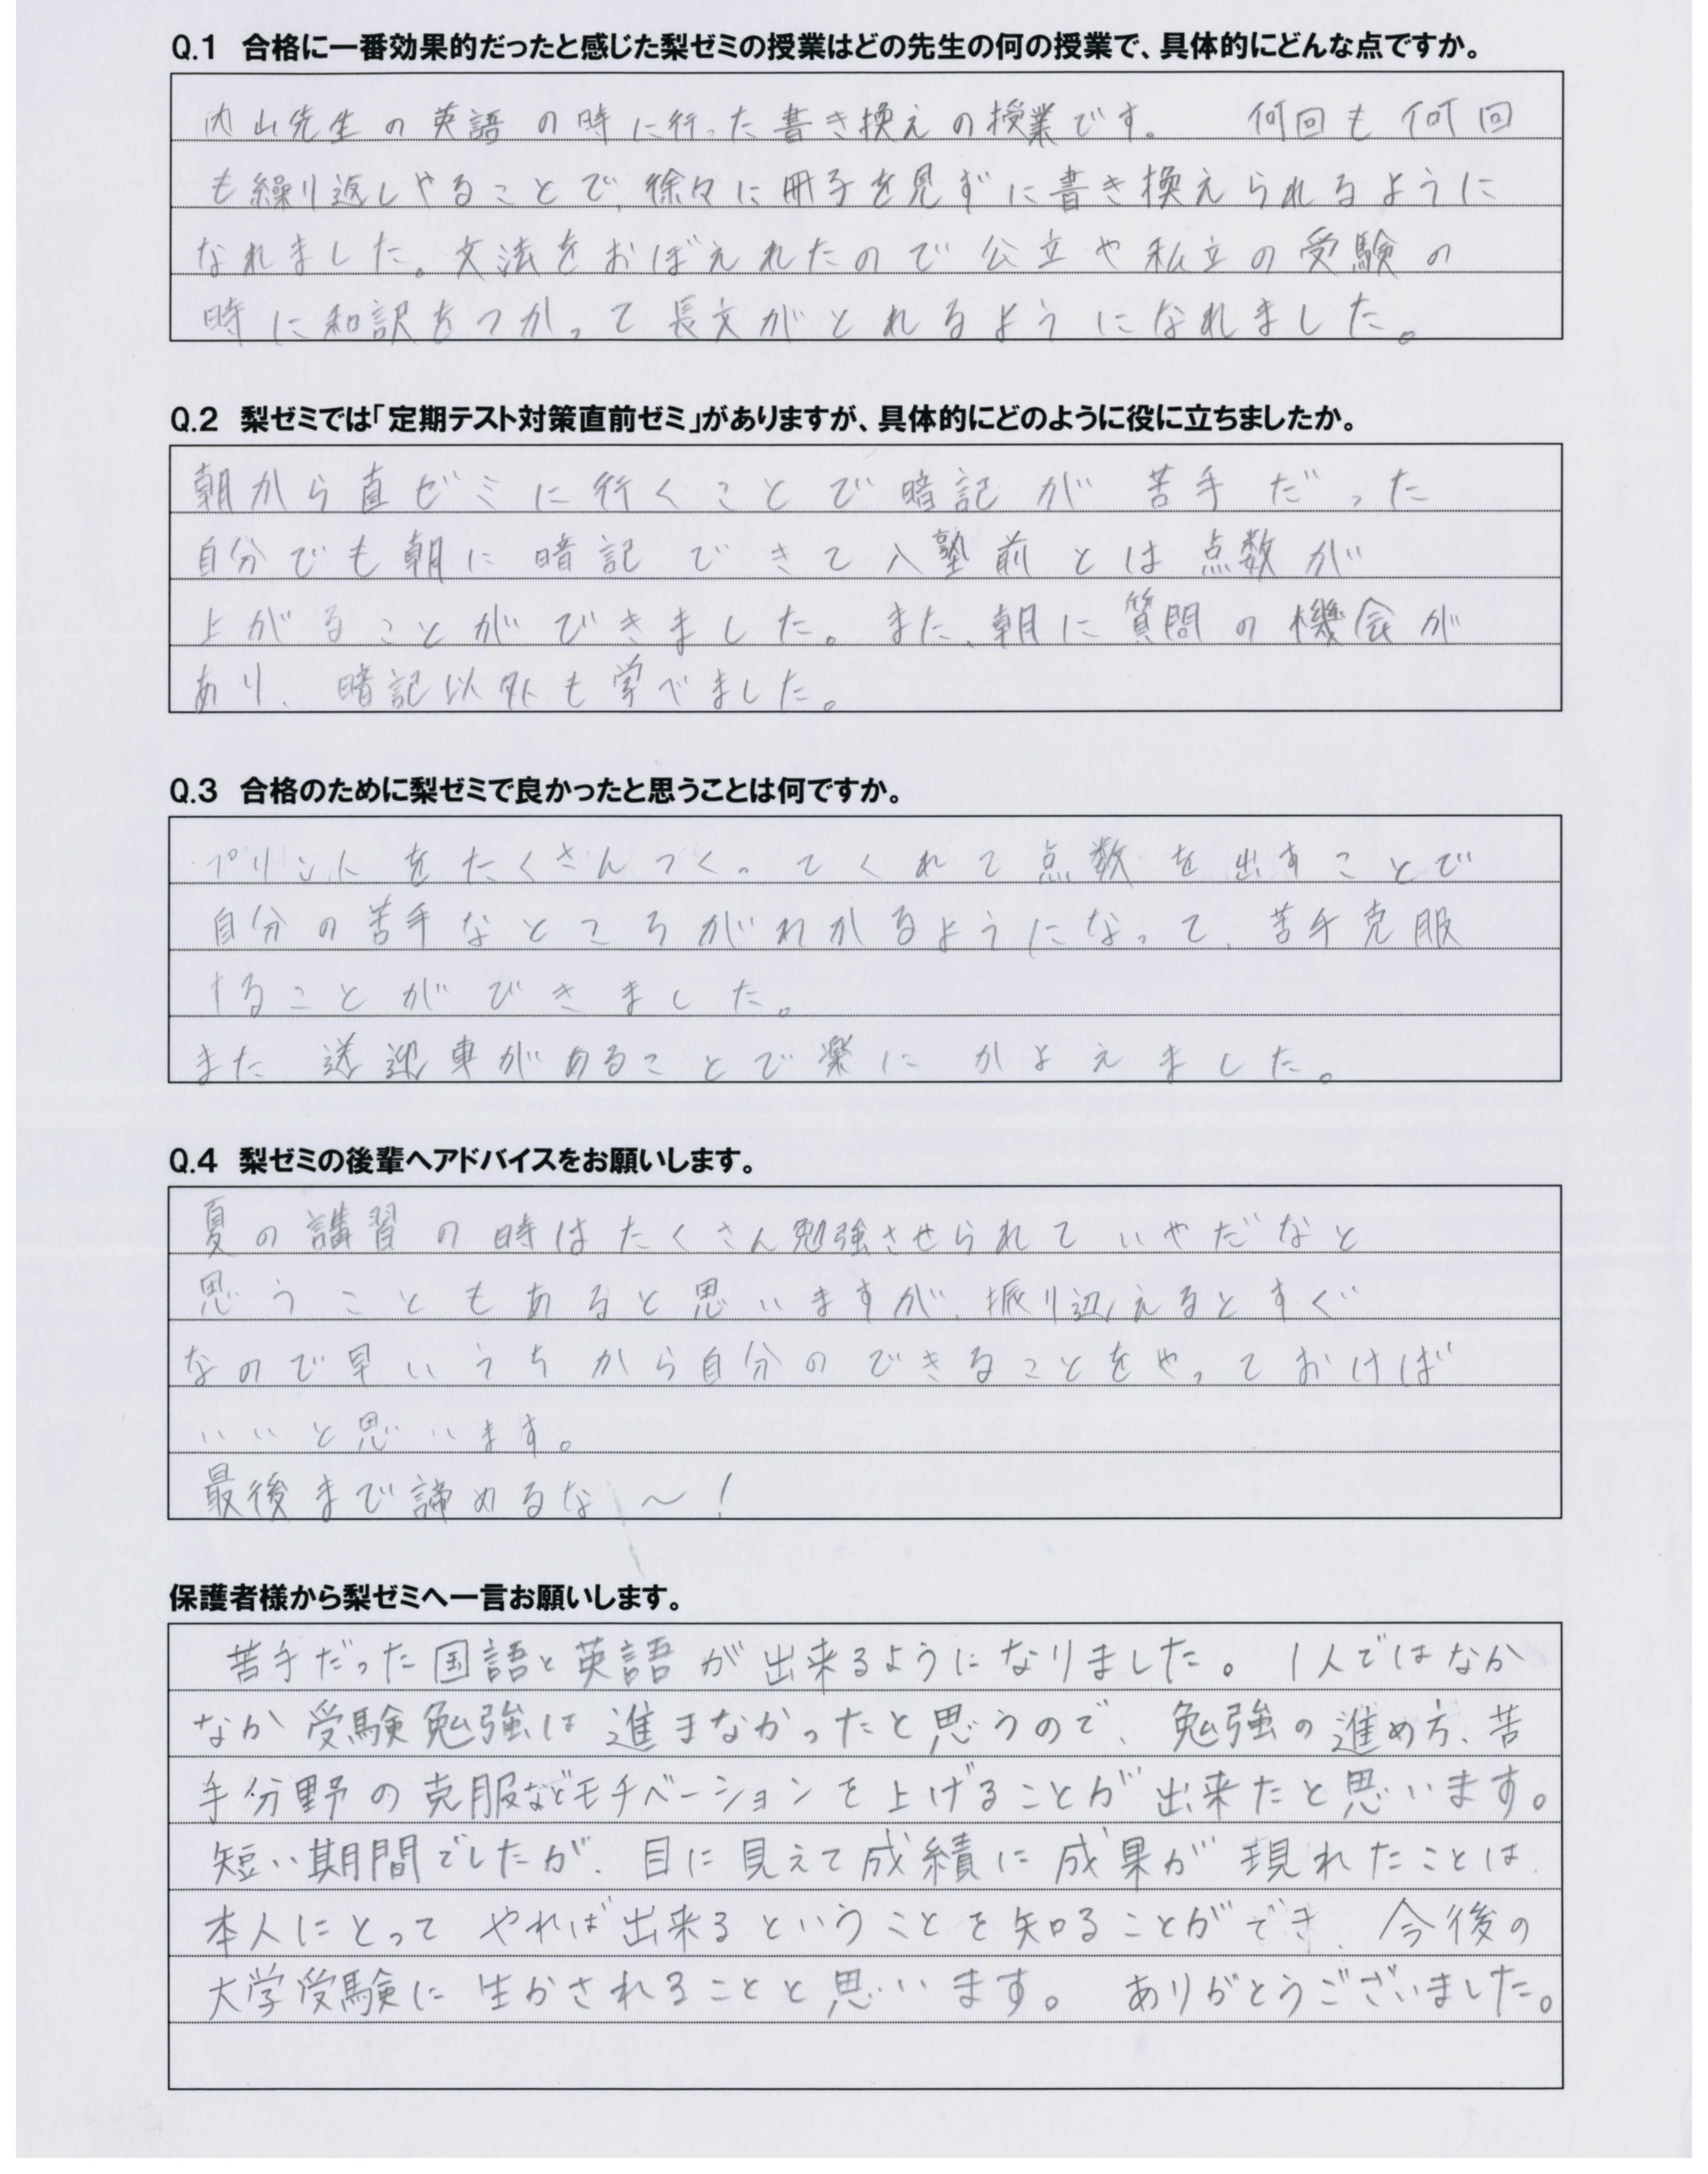 Q.1 合格に一番効果的だったと感じた梨ゼミの授業はどの先生の何の授業で、具体的にどんな点ですか。
内山先生の英語の時に行った書き換えの授業です。 何回も何回
も繰り返しやることで、徐々に冊子を見ずに書き換えられるように
なれました。文法をおぼえれたので公立や私立の受験の
時に和訳をつかって長文がとれるようになれました。
Q.2 梨ゼミでは「定期テスト対策直前ゼミ」がありますが、具体的にどのように役に立ちましたか。
朝から直ゼミに行くことで暗記が苦手だった
自分でも朝に暗記できて入塾前とは点数が
上がることができました。また、朝に質問の機会が
あり、暗記以外も学べました。
Q.3 合格のために梨ゼミで良かったと思うことは何ですか。
プリントをたくさんつくってくれて点数を出すことで
自分の苦手なところがわかるようになって、苦手克服
することができました。
また 送迎車があることで楽にかよえました。
Q.4 梨ゼミの後輩へアドバイスをお願いします。
夏の講習の時はたくさん勉強させられていやだなと
思うこともあると思いますが、振り返えるとすぐ
なので早いうちから自分のできることをやっておけば
いいと思います。
最後まで諦めるな〜!
保護者様から梨ゼミへ一言お願いします。
苦手だった国語と英語が出来るようになりました。1人ではなか
なか受験勉強は進まなかったと思うので、勉強の進め方、苦
手分野の克服などモチベーションを上げることが出来たと思います。
短い期間でしたが、目に見えて成績に成果が現れたことは、
本人にとってやれば出来るということを知ることができ、今後の
大学受験に生かされることと思います。 ありがとうございました。